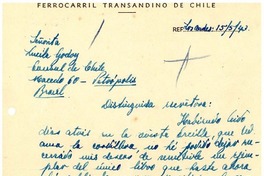 FERROCARRIL TRANSANDINO DE CHILE
REF. Los Andes. 15/5/43.
Señorita
Lucila Godoy
Consul de Chile
60 - Petrópolis
Brasil
Distinguida escritora:
Habiendo leido
días atrás en la revista Ercilla, que
la no he podido dejar
mis deseos de un ejem-
plar del único libro que hasta ahora